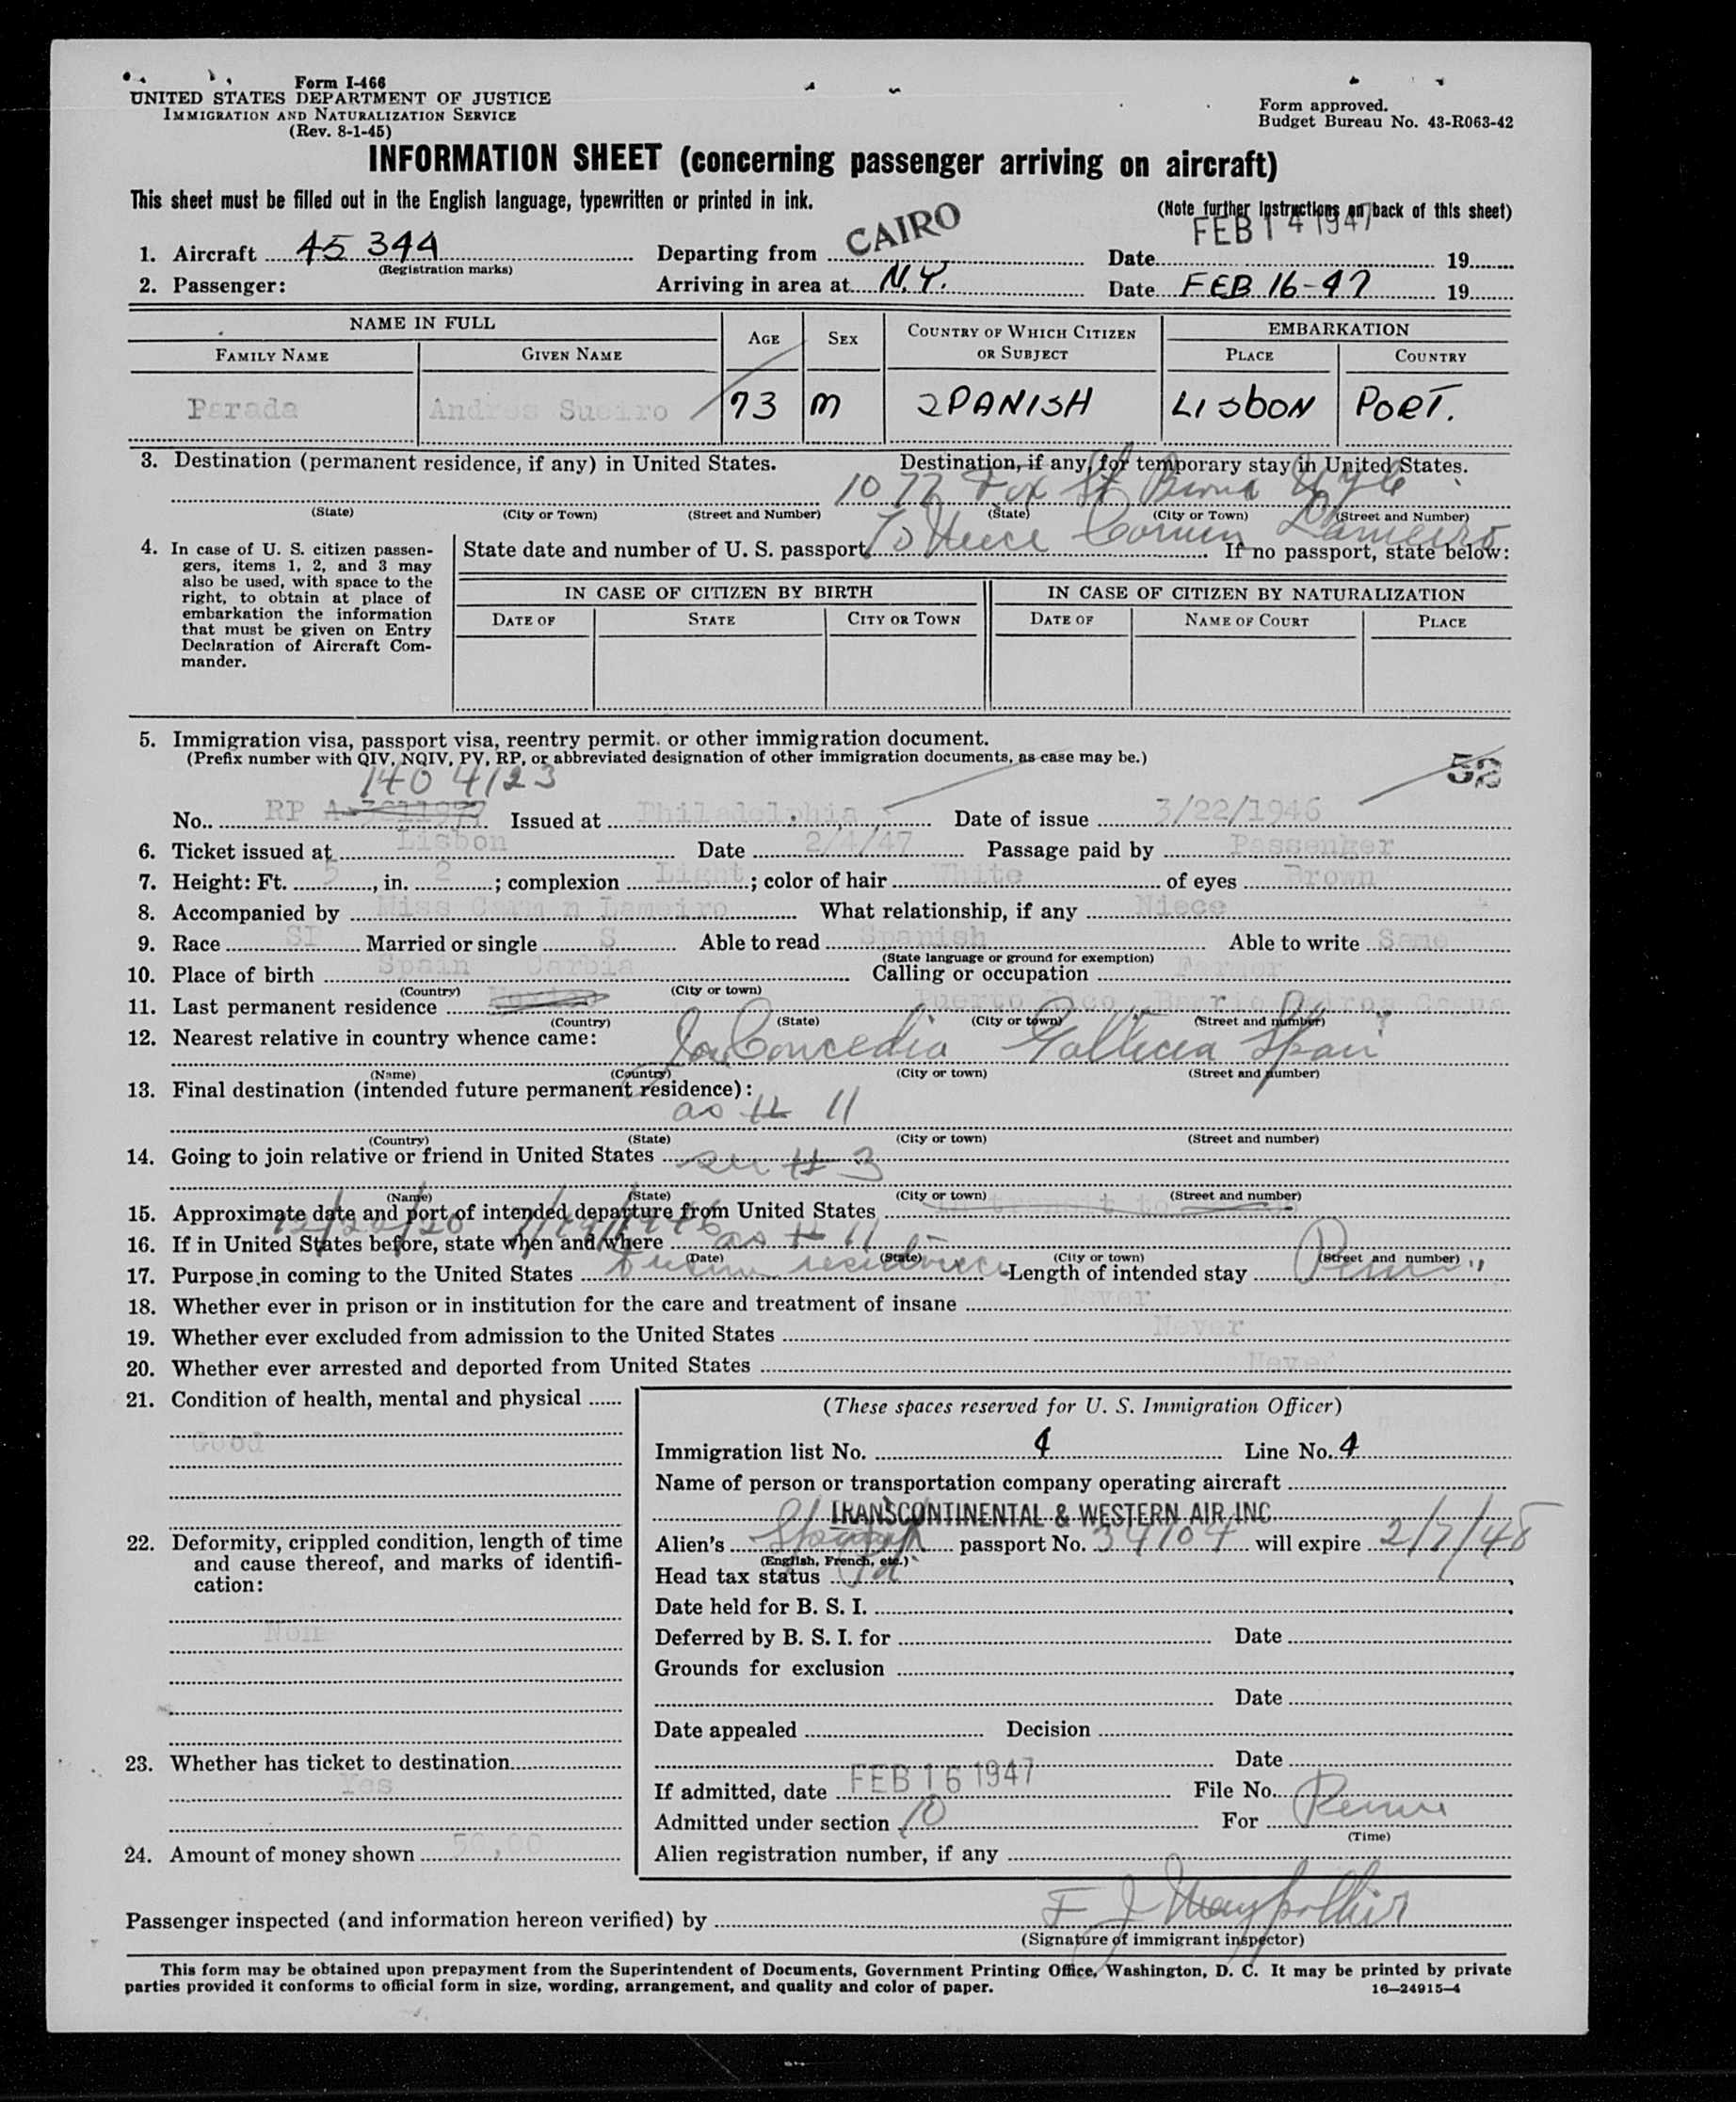 Form I-466
UNITED STATES DEPARTMENT OF JUSTICE
IMMIGRATION AND NATURALIZATION SERVICE
(Rev. 8-1-45)
Form approved.
Budget Bureau No. 43-R063-42
INFORMATION SHEET (concerning passenger arriving on aircraft)
This sheet must be filled out in the English language, typewritten or printed in ink.
(Note further instructions on back of this sheet)
1. Aircraft 45 344 Departing from CAIRO Date FEB 14 1947 19
(Registration marks)
2. Passenger: Arriving in area at N.Y. Date FEB 16-47 19
NAME IN FULL AGE SEX COUNTRY OF WHICH CITIZEN OR SUBJECT EMBARKATION
FAMILY NAME GIVEN NAME PLACE COUNTRY
Parada Andres Sueiro 73 M SPANISH LISBON PORT.
3. Destination (permanent residence, if any) in United States. Destination, if any, for temporary stay in United States.
1077 Fox St
(State) (City or Town) (Street and Number) (State) (City or Town) (Street and Number)
4. In case of U. S. citizen passengers, items 1, 2, and 3 may also be used, with space to the right, to obtain at place of embarkation the information that must be given on Entry Declaration of Aircraft Commander.
State date and number of U. S. passport To Niece Carmen Lameiro If no passport, state below:
IN CASE OF CITIZEN BY BIRTH IN CASE OF CITIZEN BY NATURALIZATION
DATE OF STATE CITY OR TOWN DATE OF NAME OF COURT PLACE
5. Immigration visa, passport visa, reentry permit. or other immigration document.
(Prefix number with QIV, NQIV, PV, RP, or abbreviated designation of other immigration documents, as case may be.)
52
1404123
No. RP Issued at Philadelphia Date of issue 3/22/1946
6. Ticket issued at Lisbon Date 2/4/47 Passage paid by Passenger
7. Height: Ft. 5, in. 2; complexion Light; color of hair White of eyes Brown
8. Accompanied by Miss Carm n Lameiro What relationship, if any Niece
9. Race SI Married or single S Able to read Spanish Able to write Same
(State language or ground for exemption)
10. Place of birth Spain Carbia Calling or occupation Farmer
(Country) (City or town)
11. Last permanent residence Puerto Rico, Barrio
(Country) (State) (City or town) (Street and number)
12. Nearest relative in country whence came:
(Name) (Country) (City or town) (Street and number)
13. Final destination (intended future permanent residence):
as # 11
(Country) (State) (City or town) (Street and number)
14. Going to join relative or friend in United States see # 3
(Name) (State) (City or town) (Street and number)
15. Approximate date and port of intended departure from United States in transit to
12/20/20
16. If in United States before, state when and where as # 11
(Date) (State) (City or town) (Street and number)
17. Purpose in coming to the United States residence Length of intended stay Perm
18. Whether ever in prison or in institution for the care and treatment of insane Never
19. Whether ever excluded from admission to the United States Never
20. Whether ever arrested and deported from United States Never
21. Condition of health, mental and physical
Good
22. Deformity, crippled condition, length of time and cause thereof, and marks of identification:
Non
23. Whether has ticket to destination
Yes
24. Amount of money shown 50.00
(These spaces reserved for U. S. Immigration Officer)
Immigration list No. 4 Line No. 4
Name of person or transportation company operating aircraft
TRANSCONTINENTAL & WESTERN AIR, INC.
Alien's Spanish passport No. 34104 will expire 2/7/48
(English, French, etc.)
Head tax status Pd
Date held for B. S. I.
Deferred by B. S. I. for Date
Grounds for exclusion
Date
Date appealed Decision
Date
If admitted, date FEB 16 1947 File No.
Admitted under section 10 For Perm
(Time)
Alien registration number, if any
Passenger inspected (and information hereon verified) by F J
(Signature of immigrant inspector)
This form may be obtained upon prepayment from the Superintendent of Documents, Government Printing Office, Washington, D. C. It may be printed by private
parties provided it conforms to official form in size, wording, arrangement, and quality and color of paper.
16—24915-4